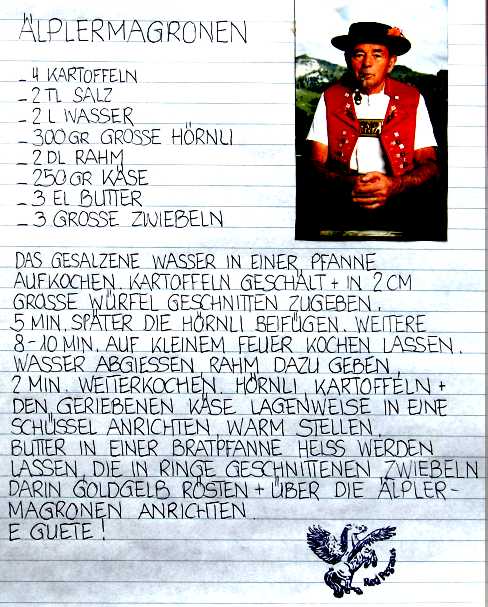 ÄLPLERMAGRONEN
- 4 KARTOFFELN
- 2 TL SALZ
- 2 L WASSER
- 300 GR GROSSE HÖRNLI
- 2 DL RAHM
- 250 GR KÄSE
- 3 EL BUTTER
- 3 GROSSE ZWIEBELN
DAS GESALZENE WASSER IN EINER PFANNE
AUFKOCHEN. KARTOFFELN GESCHÄLT + IN 2 CM
GROSSE WÜRFEL GESCHNITTEN ZUGEBEN.
5 MIN. SPÄTER DIE HÖRNLI BEIFÜGEN. WEITERE
8-10 MIN. AUF KLEINEM FEUER KOCHEN LASSEN.
WASSER ABGIESSEN, RAHM DAZU GEBEN,
2 MIN. WEITERKOCHEN. HÖRNLI, KARTOFFELN +
DEN GERIEBENEN KÄSE LAGENWEISE IN EINE
SCHÜSSEL ANRICHTEN, WARM STELLEN.
BUTTER IN EINER BRATPFANNE HEISS WERDEN
LASSEN, DIE IN RINGE GESCHNITTENEN ZWIEBELN
DARIN GOLDGELB RÖSTEN + ÜBER DIE ÄLPLER-
MAGRONEN ANRICHTEN.
E GUETE!
Red Pegasus